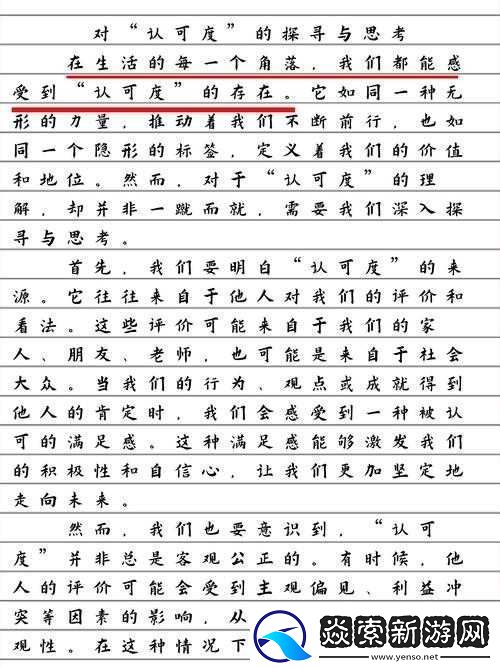 对“认可度”的探寻与思考
在生活的每一个角落，我们都能感
受到“认可度”的存在。它如同一种无
形的力量，推动着我们不断前行，也如
同一个隐形的标签，定义着我们的价值
和地位。然而，对于“认可度”的理
解，却并非一蹴而就，需要我们深入探
寻与思考。
首先，我们要明白“认可度”的来
源。它往往来自于他人对我们的评价和
看法。这些评价可能来自于我们的家
人、朋友、老师，也可能是来自于社会
大众。当我们的行为、观点或成就得到
他人的肯定时，我们会感受到一种被认
可的满足感。这种满足感能够激发我们
的积极性和自信心，让我们更加坚定地
走向未来。
然而，我们也要意识到，“认可
度”并非总是客观公正的。有时候，他
人的评价可能会受到主观偏见、利益冲
突等因素的影响，从
观性。在这种情况下
焱索新游网
www.yenso.net